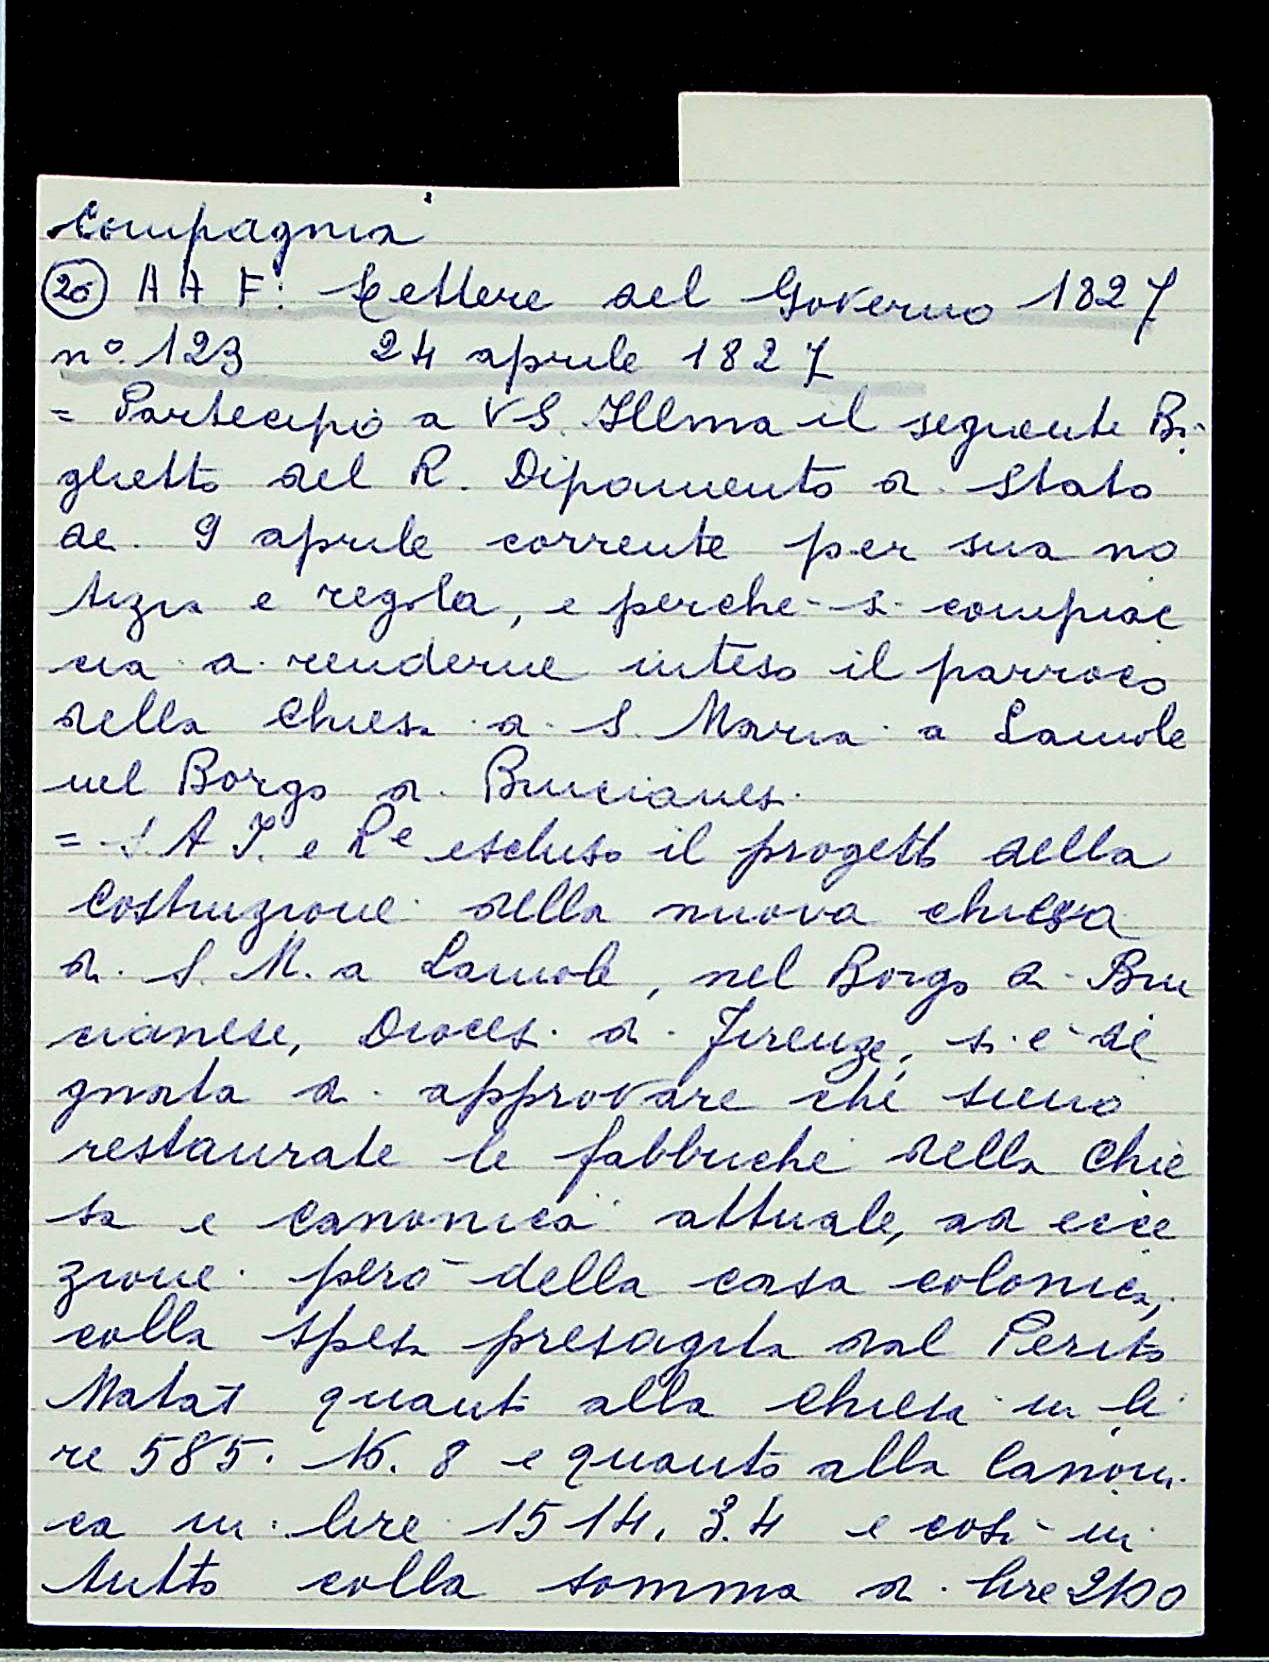 Compagnia
20 A A F: Lettere del Governo 1827
n°. 123 24 aprile 1827
= Partecipo a VS. Illma il seguente Bi
glietto del R. Dipamento di Stato
de. 9 aprile corrente per sua no
tizia e regola, e perchè si compiac
cia di renderne inteso il parroco
della Chiesa di S. Maria a Lamole
nel Borgo di Brucianesi
= S. A I. e Re escluso il progetto della
Costruzione della nuova chiesa
di S. M. a Lamole, nel Borgo di Bru
cianese, Diocesi di Firenze, si è de
gnata di approvare che sieno
restaurate le fabbriche della Chie
sa e Canonica attuale, ad ecce
zione però della casa colonica,
colla spesa presagita dal Perito
quanto alla Chiesa in li
re 585. 16. 8 e quanto alla Canoni
ca in lire 1514. 3.4 e così in
tutto colla somma di lire 2100